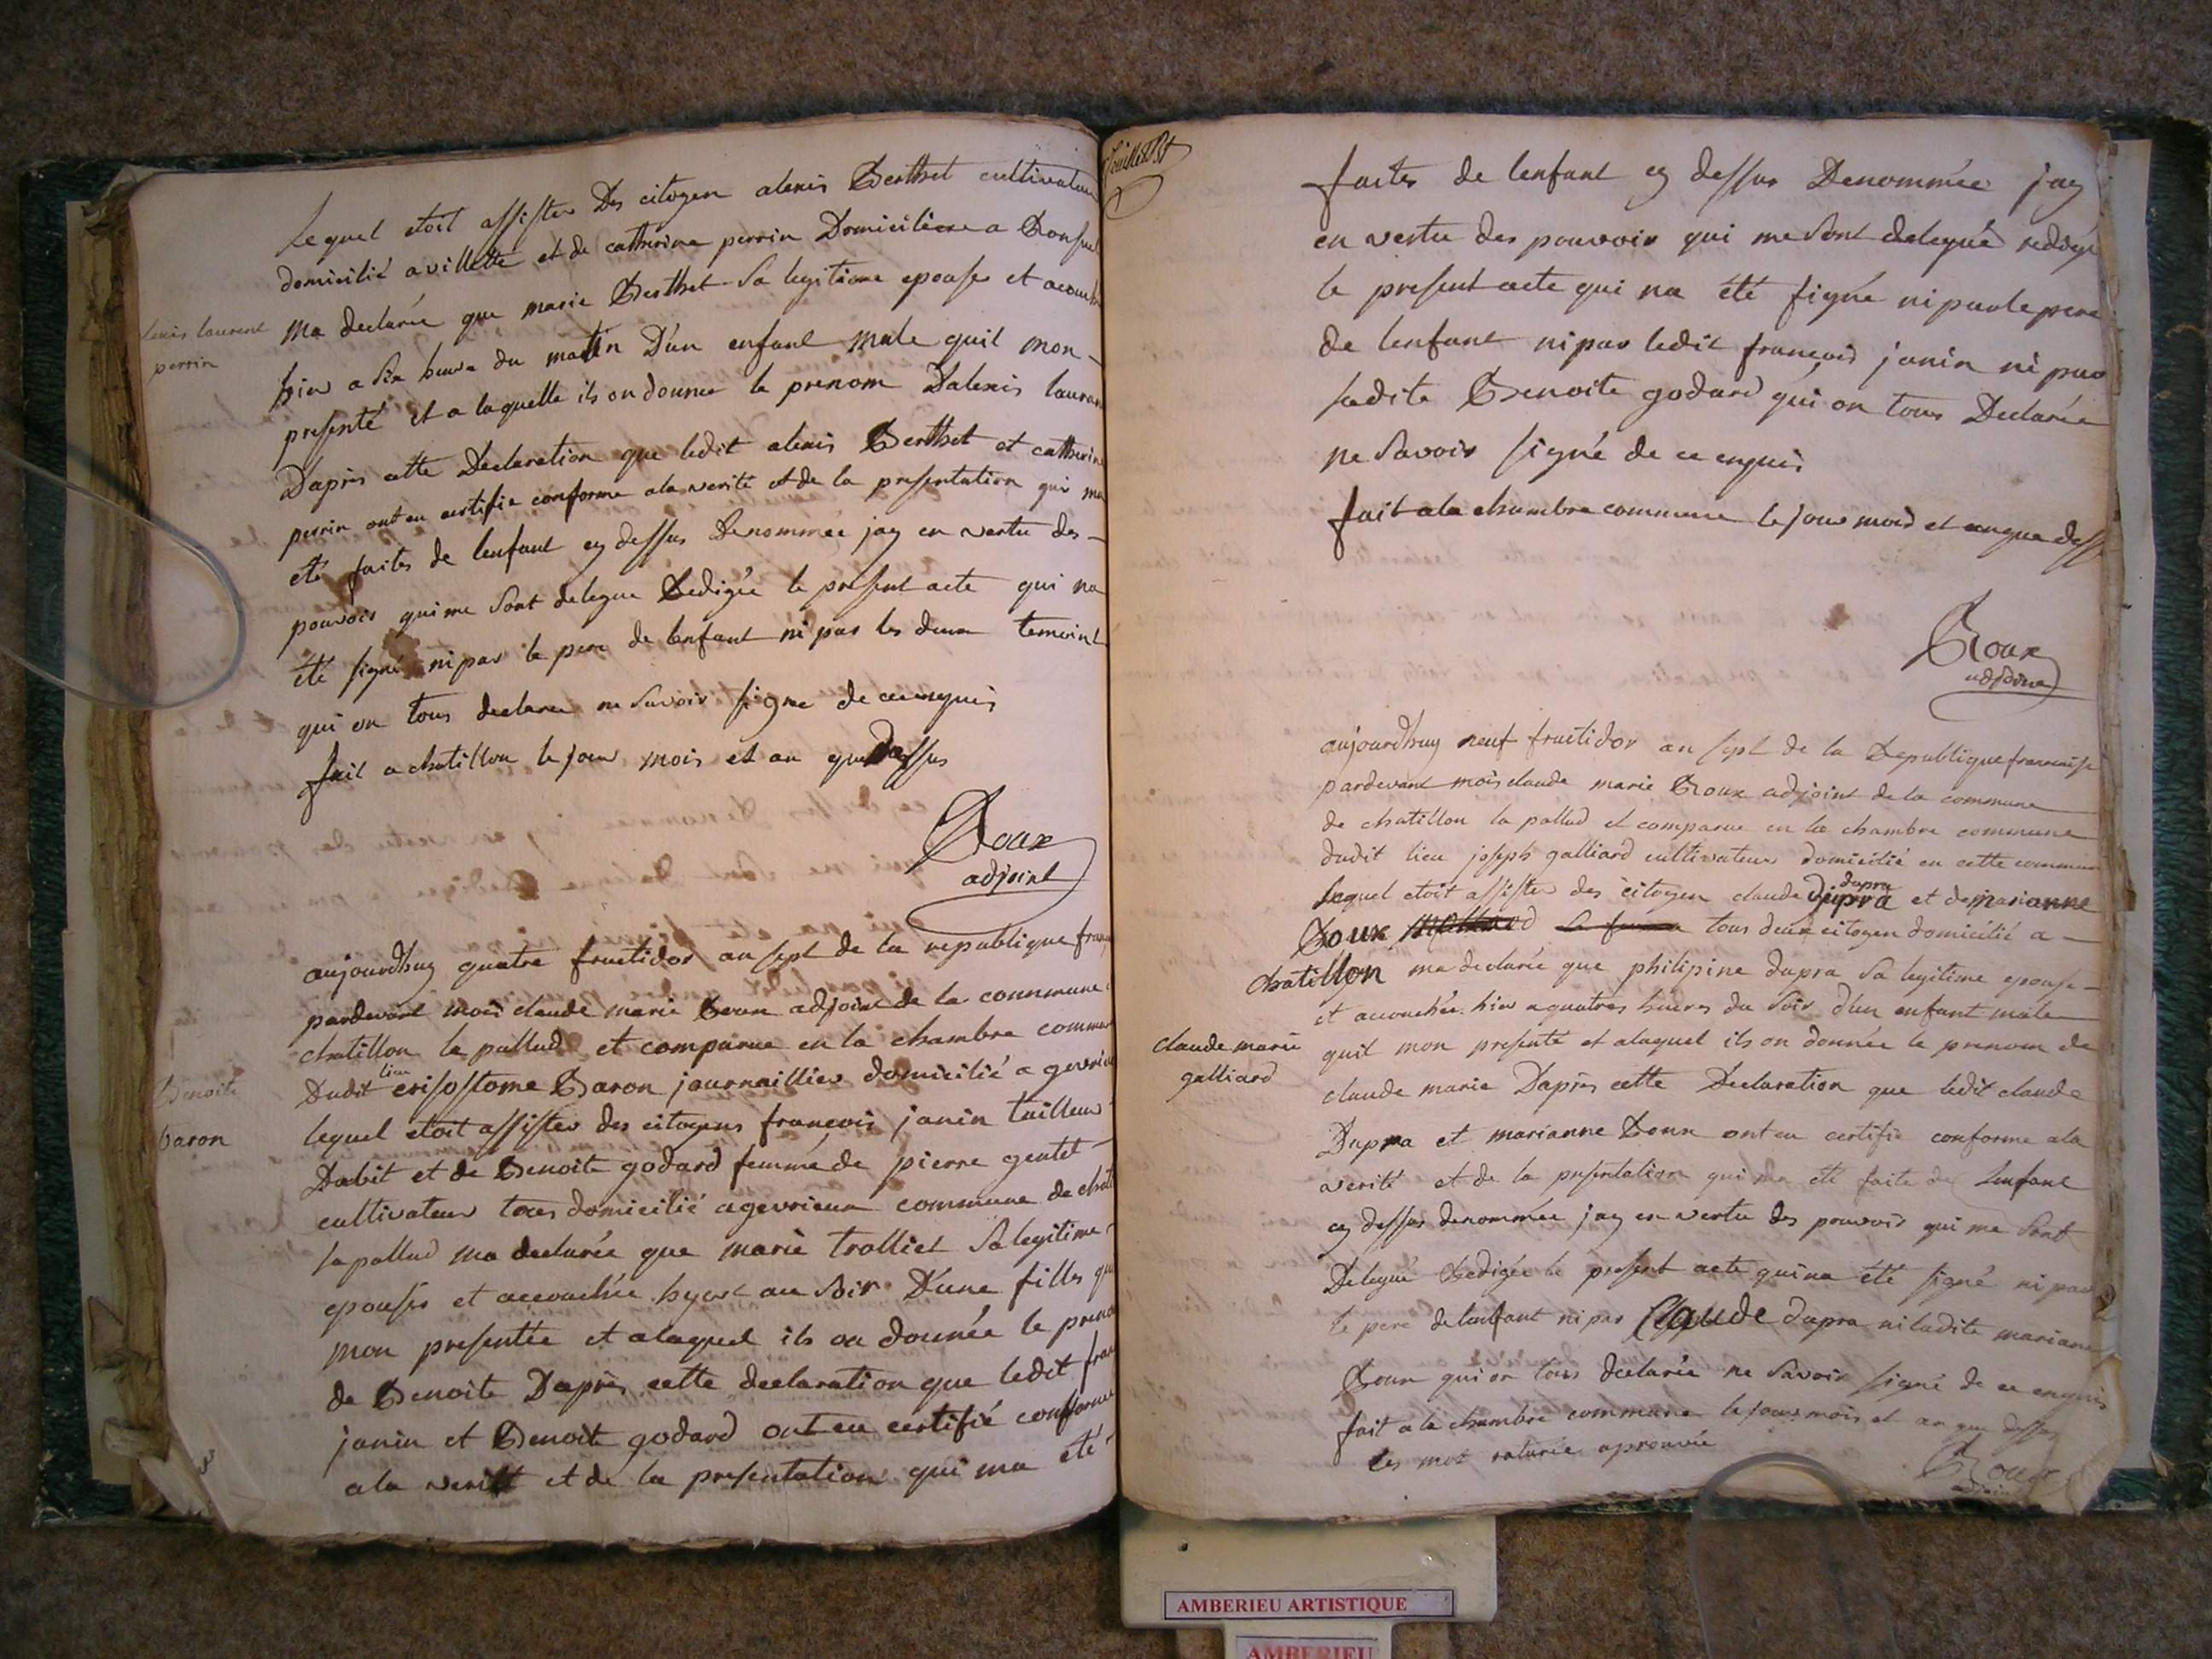 Lequel etoit assister Des citoyen alexis Berthet cultivateur
domicilié a villette et de catherine perrin Domiciliere a
alexis laurent
perrin
ma declarée que marie Berthet Sa legitime epouse et acouch
hier a Six heure du matin D'un enfant male quil mon-
presenté et a laquelle ils on donner le prenom Dalexis lauran
Daprès cette Declaration que ledit alexis Berthet et catherine
perrin ont en certifie conforme ala verité et de la presentation qui ma
eté faites de lenfant cy dessus Denommée jay en vertu des-
pouvois qui me Sont delegue Redigée le present acte qui na
été signé ni par le pere de lenfant ni par les deux temoint
qui on tous declaree ne Savoir signe de ce enquis
fait a chatillon le jour mois et an que Dessus
Roux
adjoint
aujourdhuy quatre fructidor an sept de la republique fran
pardevant moi claude marie Roux adjoint de la commune
chatillon la pallud et comparue en la chambre commun
Benoite
baron
Dudit lieu crisostome Baron journaillier domicilié a gevrieu
lequel etoit assister des citoyens francois janin tailleur
Dabit et de Benoite godard femme de pierre gentet-
cultivateur tous domicilié agevrieux commune de chat
lapallud ma declarée que marie trolliet Salegitime
epouses et accouchée hyert au Soir D'une filles qu
mon presentée et alaquel ils on donnée le preno
de Benoite Daprès cette declaration que ledit fran
janin et Benoite godard ont en certifié conforme
ala verité et de la presentation qui ma eté
faites de lenfant cy dessus Denommée jay
en vertu des pouvoir qui me Sont delegué rédigé
le present acte qui na été signé ni par le pere
de lenfant ni par ledit francois janin ni par
ladite Benoite godard qui on tous Declarée
ne Savoir signé de ce enquis
fait ala chambre commune le jour mois et an que dess
Roux
adjoint
aujourdhuy neuf fructidor an sept de la Republique francaise
pardevant moi claude marie Roux adjoint de la commune
de chatillon la pallud et comparue en la chambre commune
dudit lieu joseph galliard cultivateur domicilié en cette commun
lequel etoit assister des citoyen claude dupra dupra et de marianne
Roux tous deux citoyen domicilié a-
chatillon ma declarée que philipine dupra Sa legitime epouse-
et accouchée hier a quatres heures du Soir d'un enfant male
claude marie
galliard
quil mon presenté et alaquel ils on donnée le prenom de
claude marie Daprès cette Declaration que ledit claude
Dupra et marianne Roux ont en certifié conforme ala
verité et de la presentation qui ma été faite de lenfant
cy dessus denommée jay en vertu des pouvois qui me Sont
Delegué Redigée le present acte qui na été signé ni par
le pere de lenfant ni par Claude dupra ni ladite mariane
Roux qui on tous declarée ne Savoir signé de ce enquis
fait a la chambre commune le jour mois et an que dessus
les mot raturée aprouvée
Roux
AMBERIEU ARTISTIQUE
AMBERIEU